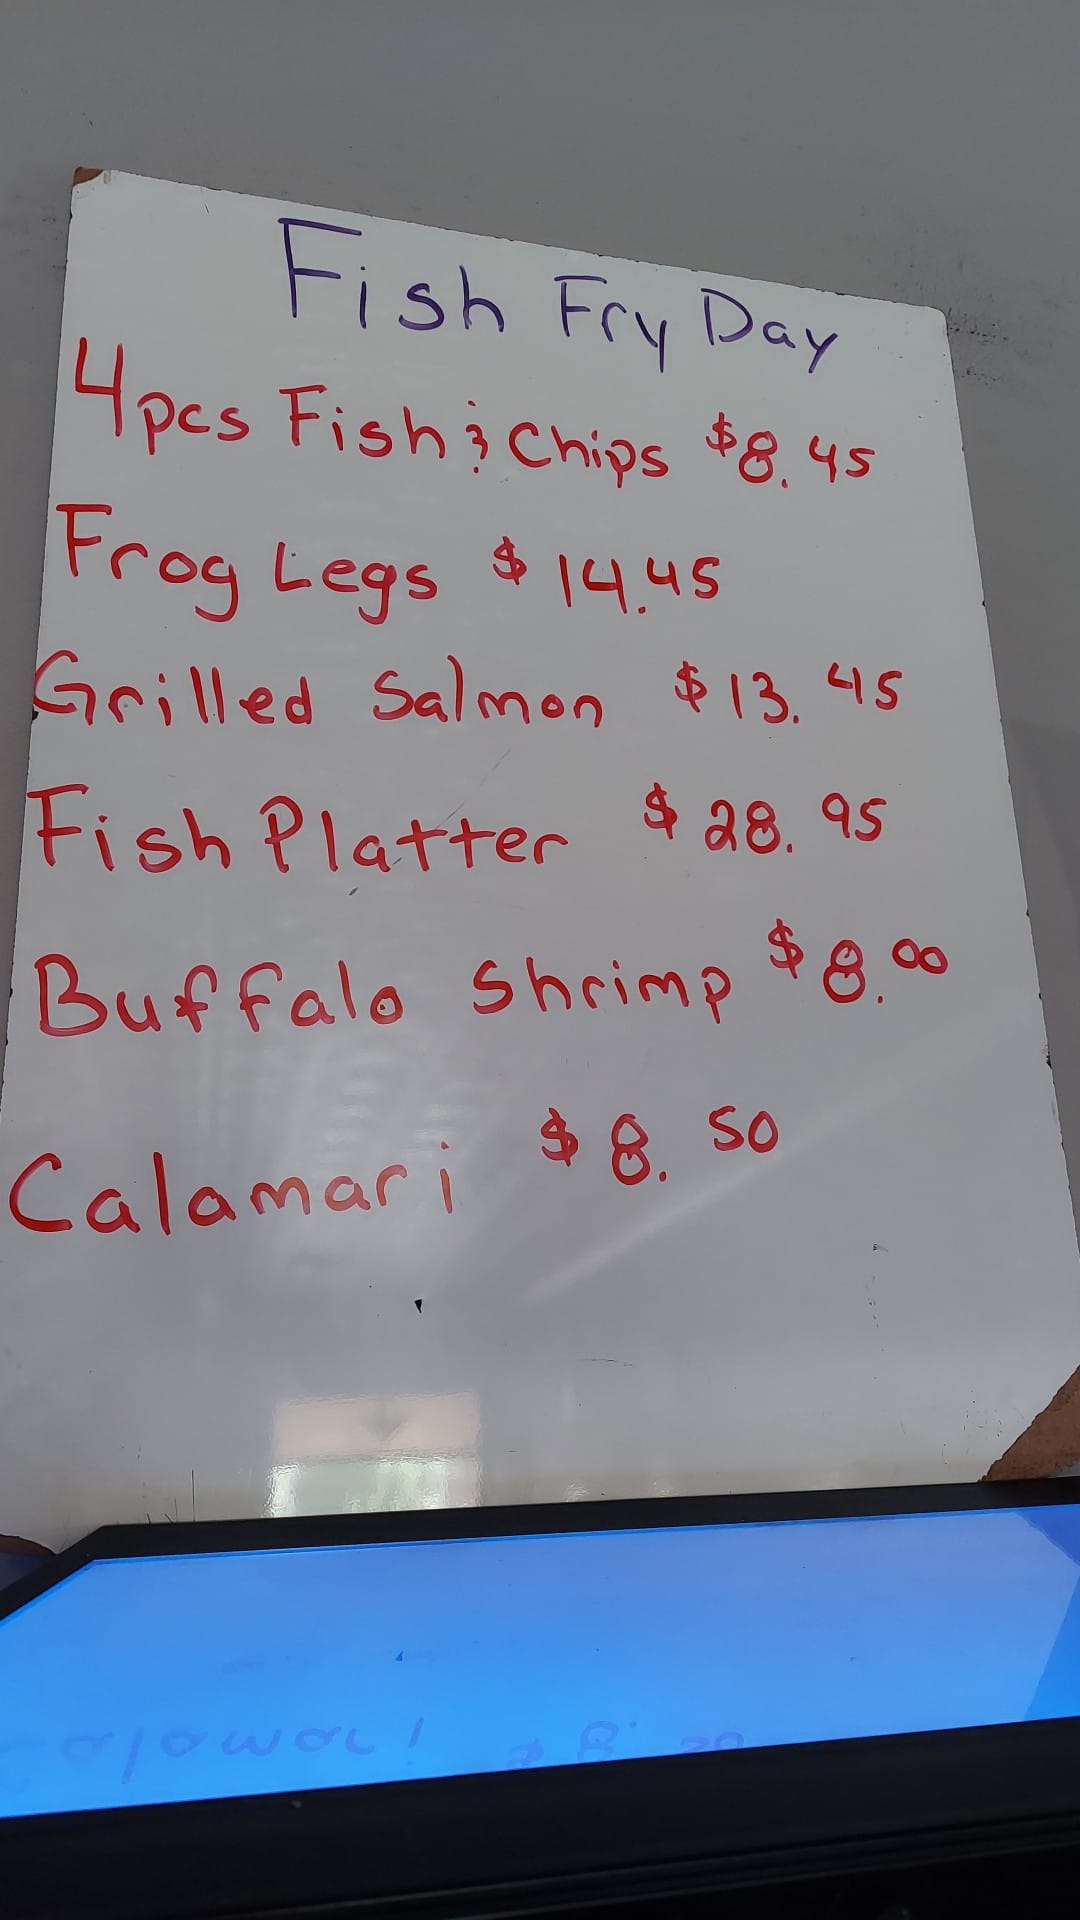 Fish Fry Day
4pcs Fish & Chips $8.45
Frog Legs $14.45
Grilled Salmon $13.45
Fish Platter $28.95
Buffalo Shrimp $8.00
Calamari $8.50